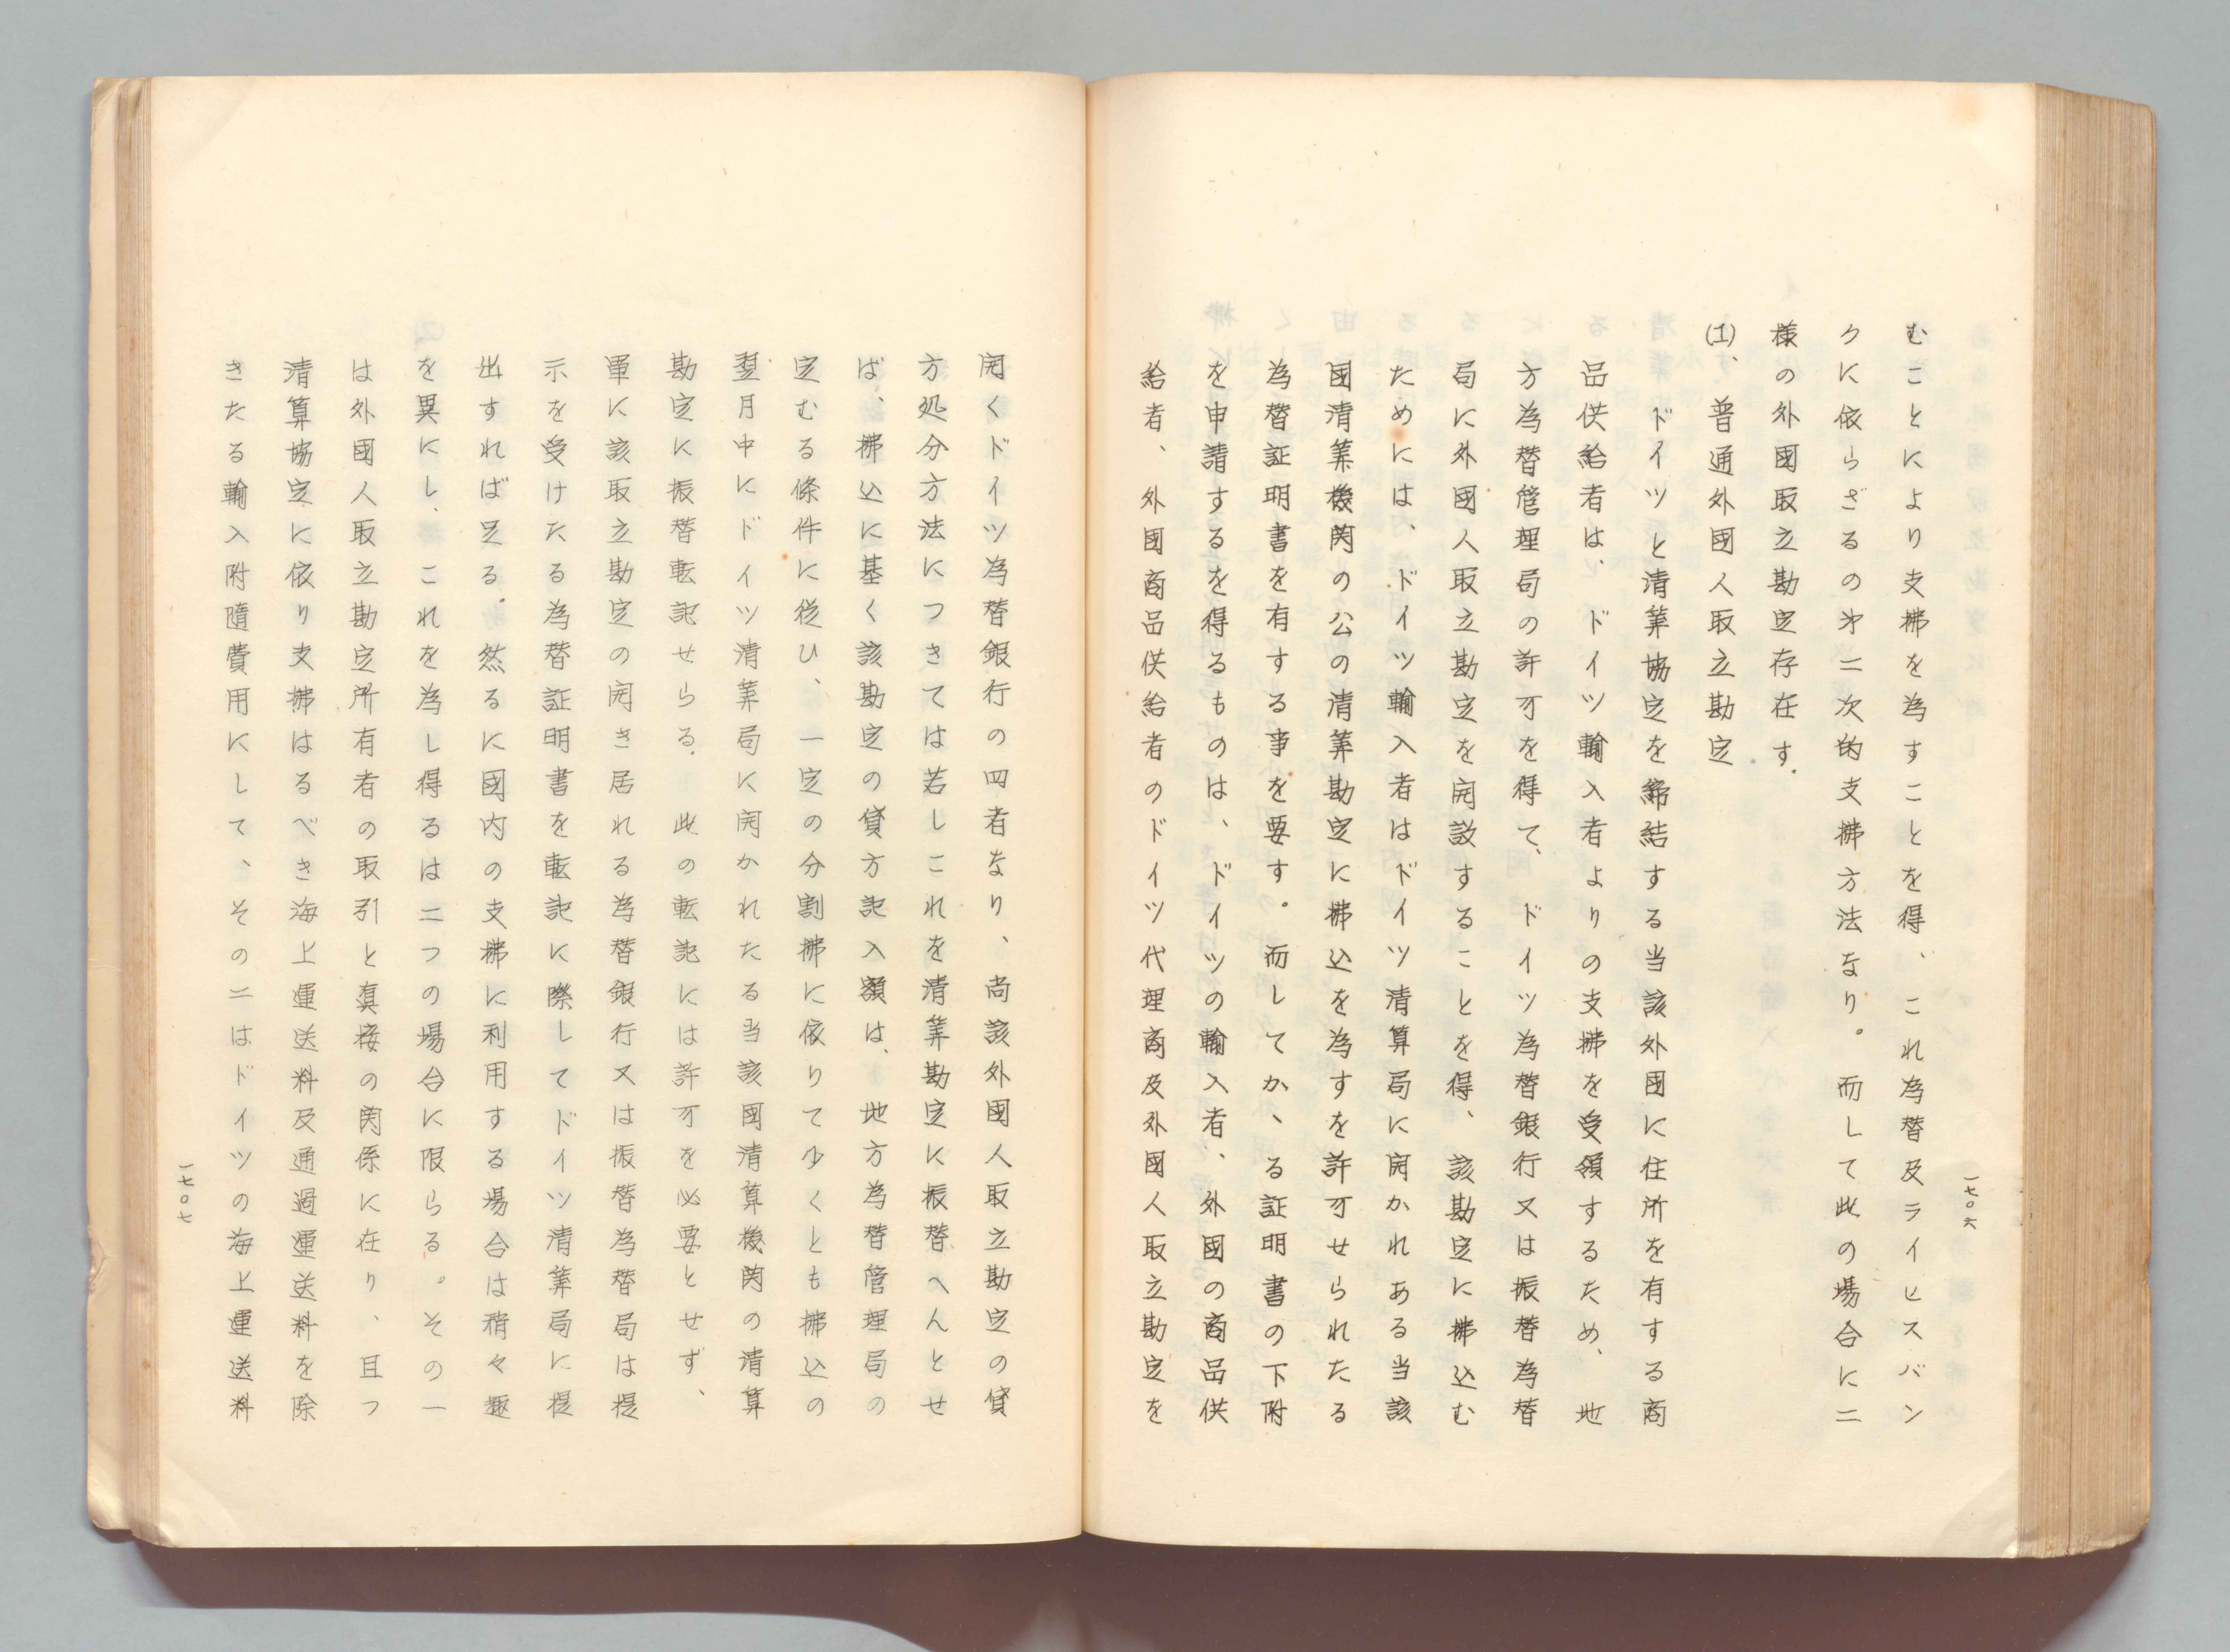 むことにより支拂を為すことを得、これ為替及ライヒスバン
クに依らざるの才二次的支拂方法なり。而して此の場合に二
様の外國取立勘定存在す.
(1)、普通外國人取立勘定
ドイツと清筭協定を締結する当該外國に住所を有する商
品供給者は、ドイツ輸入者よりの支拂を受領するため、地
方為替管理局の許可を得て、ドイツ為替銀行又は振替為替
局に外國人取立勘定を開設することを得、該勘定に拂込む
ためには、ドイツ輸入者はドイツ清算局に開かれある当該
國清筭機関の公の清筭勘定に拂込を為すを許可せられたる
為替証明書を有する事を要す。而してかゝる証明書の下附
を申請するを得るものは、ドイツの輸入者、外國の商品供
給者、外國商品供給者のドイツ代理商及外國人取立勘定を
一七〇六
開くドイツ為替銀行の四者なり、尚該外國人取立勘定の貸
方処分方法につきては若しこれを清筭勘定に振替へんとせ
ば、拂込に基く該勘定の貸方記入額は、地方為替管理局の
定むる條件に従ひ、一定の分割拂に依りて少くとも拂込の
翌月中にドイツ清筭局に開かれたる当該國清算機関の清算
勘定に振替転記せらる.此の転記には許可を必要とせず、
単に該取立勘定の開き居れる為替銀行又は振替為替局は提
示を受けたる為替証明書を転記に際してドイツ清筭局に提
出すれば足る.然るに國内の支拂に利用する場合は稍々趣
を異にし、これを為し得るは二つの場合に限らる。その一
は外國人取立勘定所有者の取引と眞接の関係に在り、且つ
清算協定に依り支拂はるべき海上運送料及通過運送料を除
きたる輸入附隨費用にして、その二はドイツの海上運送料
一七〇七